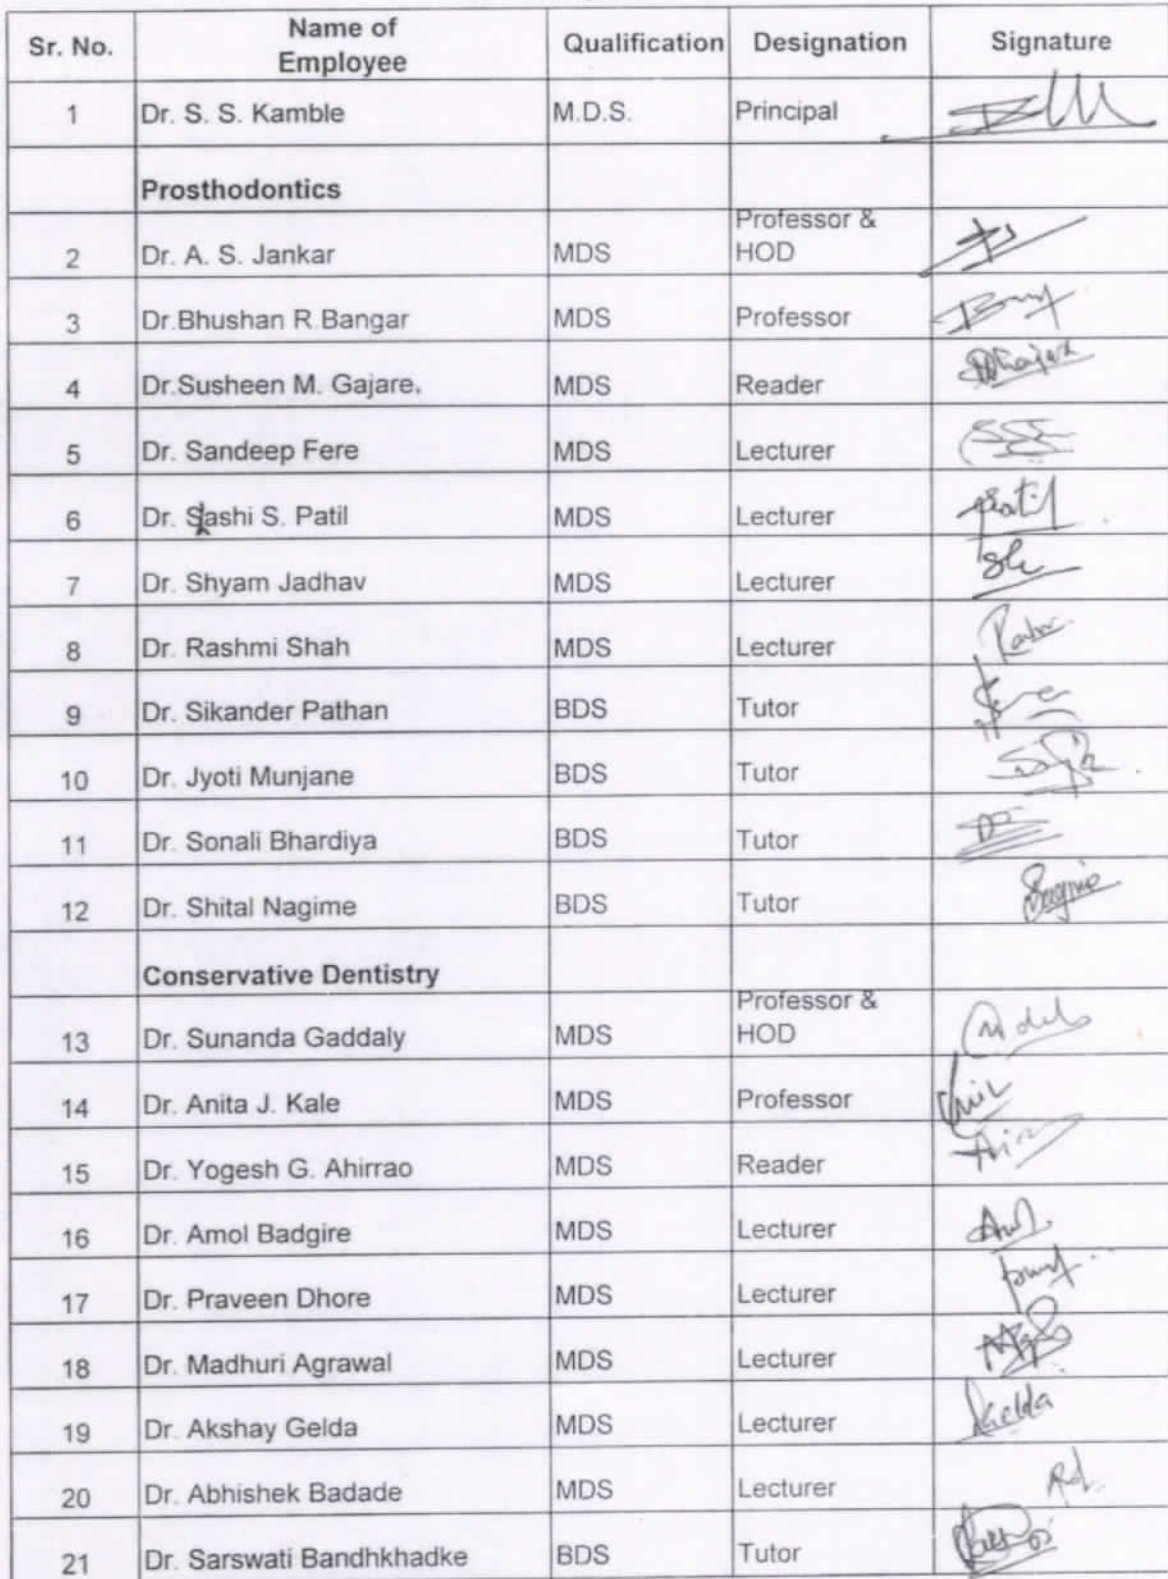 Sr. No. Name of Employee Qualification Designation Signature
1 Dr. S. S. Kamble M.D.S. Principal
Prosthodontics
2 Dr. A. S. Jankar MDS Professor & HOD
3 Dr.Bhushan R.Bangar MDS Professor
4 Dr.Susheen M. Gajare. MDS Reader
5 Dr. Sandeep Fere MDS Lecturer
6 Dr. Sashi S. Patil MDS Lecturer
7 Dr. Shyam Jadhav MDS Lecturer
8 Dr. Rashmi Shah MDS Lecturer
9 Dr. Sikander Pathan BDS Tutor
10 Dr. Jyoti Munjane BDS Tutor
11 Dr. Sonali Bhardiya BDS Tutor
12 Dr. Shital Nagime BDS Tutor
Conservative Dentistry
13 Dr. Sunanda Gaddaly MDS Professor & HOD
14 Dr. Anita J. Kale MDS Professor
15 Dr. Yogesh G. Ahirrao MDS Reader
16 Dr. Amol Badgire MDS Lecturer
17 Dr. Praveen Dhore MDS Lecturer
18 Dr. Madhuri Agrawal MDS Lecturer
19 Dr. Akshay Gelda MDS Lecturer
20 Dr. Abhishek Badade MDS Lecturer
21 Dr. Sarswati Bandhkhadke BDS Tutor